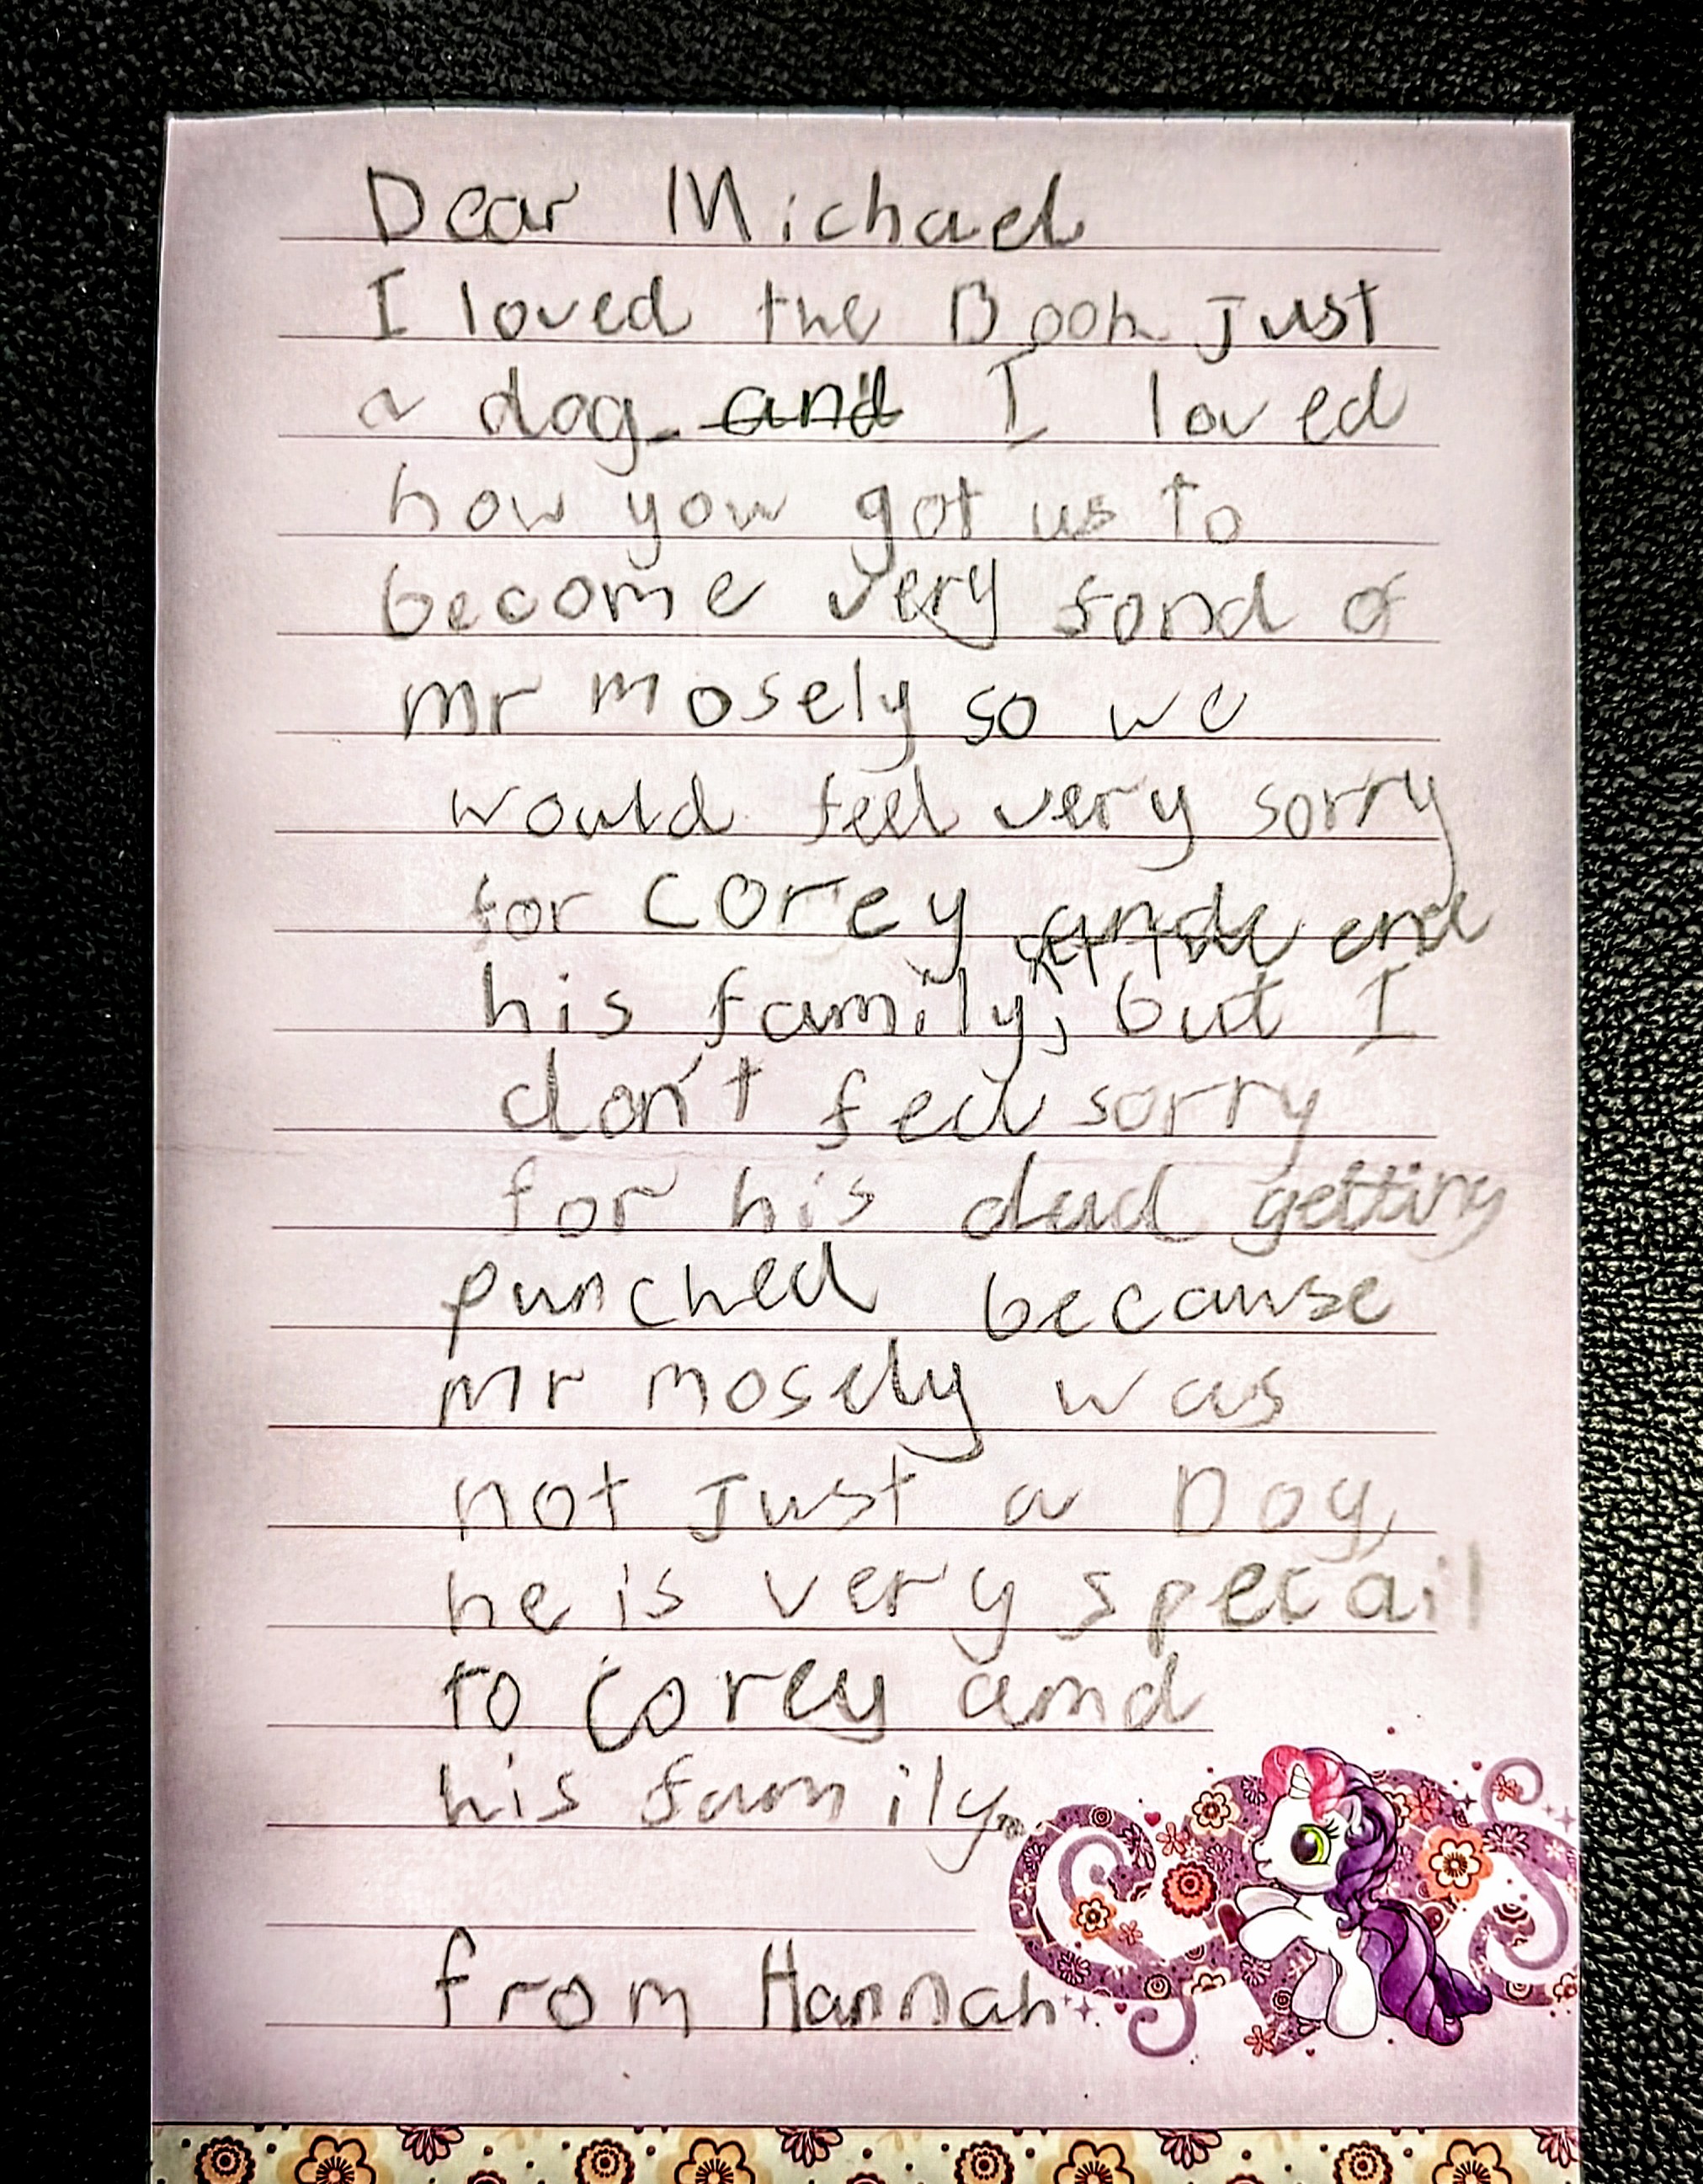 Dear Michael
I loved the Book Just
a dog. and I loved
how you got us to
become very fond of
mr mosely so we
would feel very sorry
for corey and
his family, but I
don't feel sorry
for his dad getting
punched because
mr mosely was
not Just a Dog,
he is very specail
to Corey amd
his family.
from Hannah